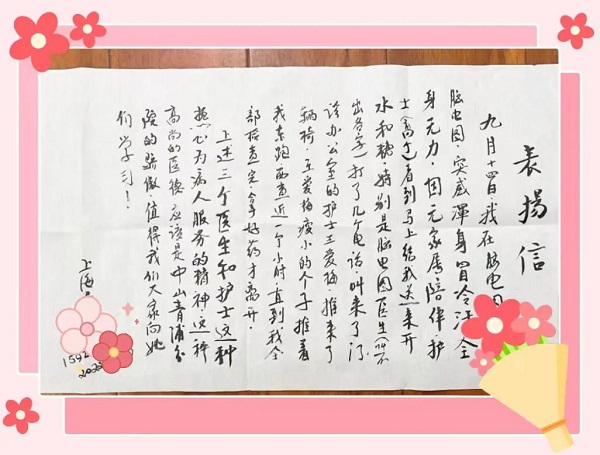 表揚信
九月十四日我在脑电
脑电图,突感渾身冒冷汗,全
身无力,因无家属陪伴,护
士(高)看到马上给我送来开
水和糖,特别是脑电图医生(叫不
出名字)打了几个电话,叫来了门
诊办公室的护士王爱梅推来了
辆椅,王爱梅瘦小的个子推着
我东跑西查近一个小时,直到我全
部检查完,拿好药才离开。
上述三个医生和护士这种
热心为病人服务的精神,这种
高尚的医德应该是中山青浦分
院的骄傲,值得我们大家向她
们学习!
上海
1592